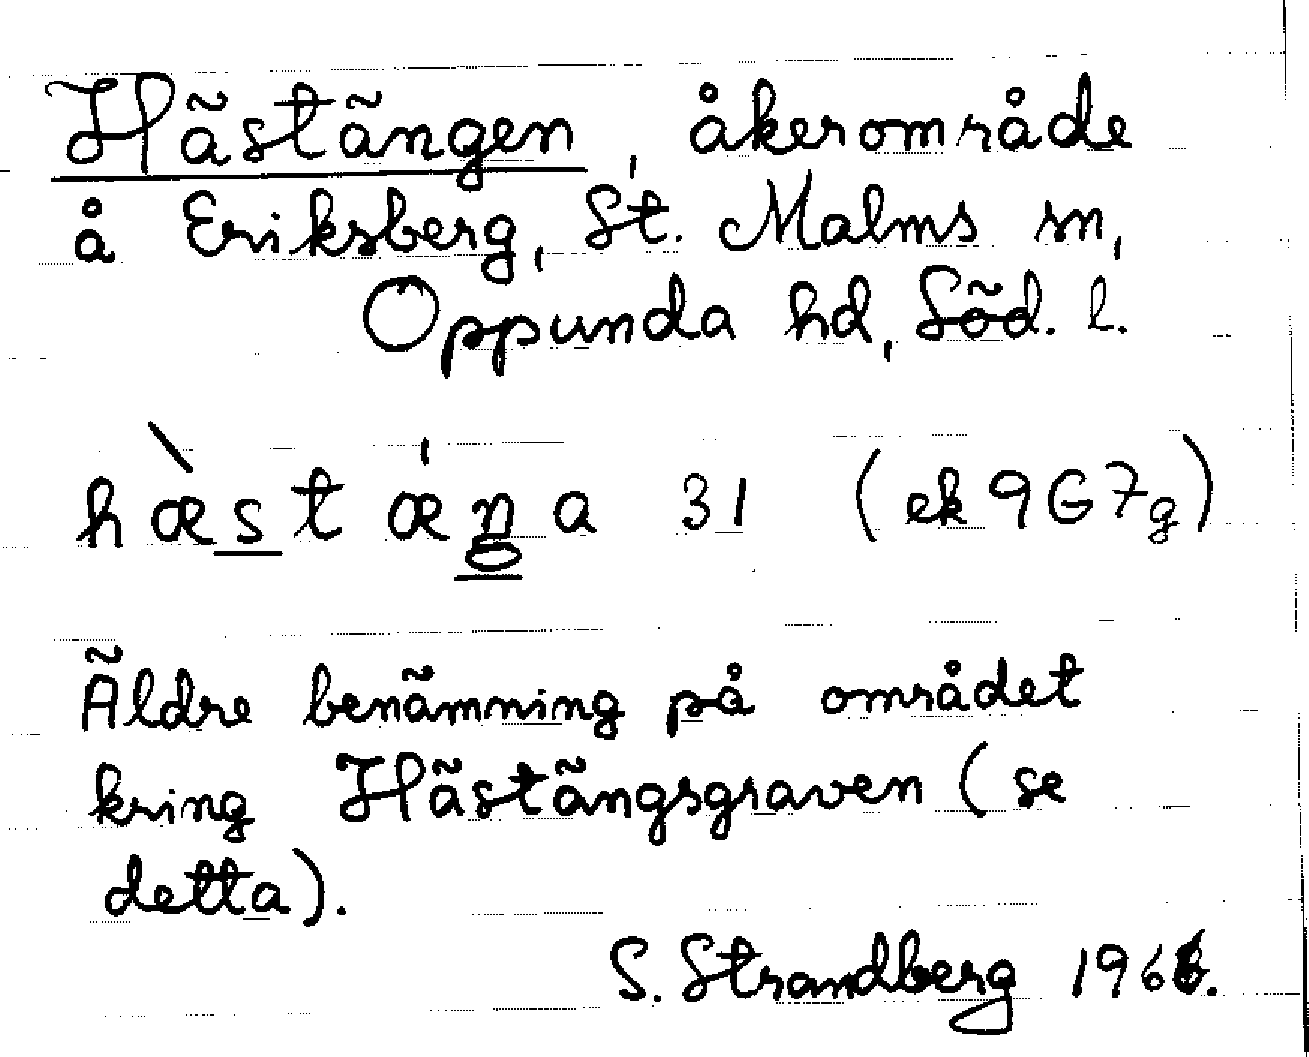 Hästängen, åkerområde
å Eriksberg, St. Malms sn,
Oppunda hd, Söd. l.
hæ̀stǽŋa 31 (ek 9G7g)
Äldre benämning på området
kring Hästängsgraven (se
detta).
S. Strandberg 1966.